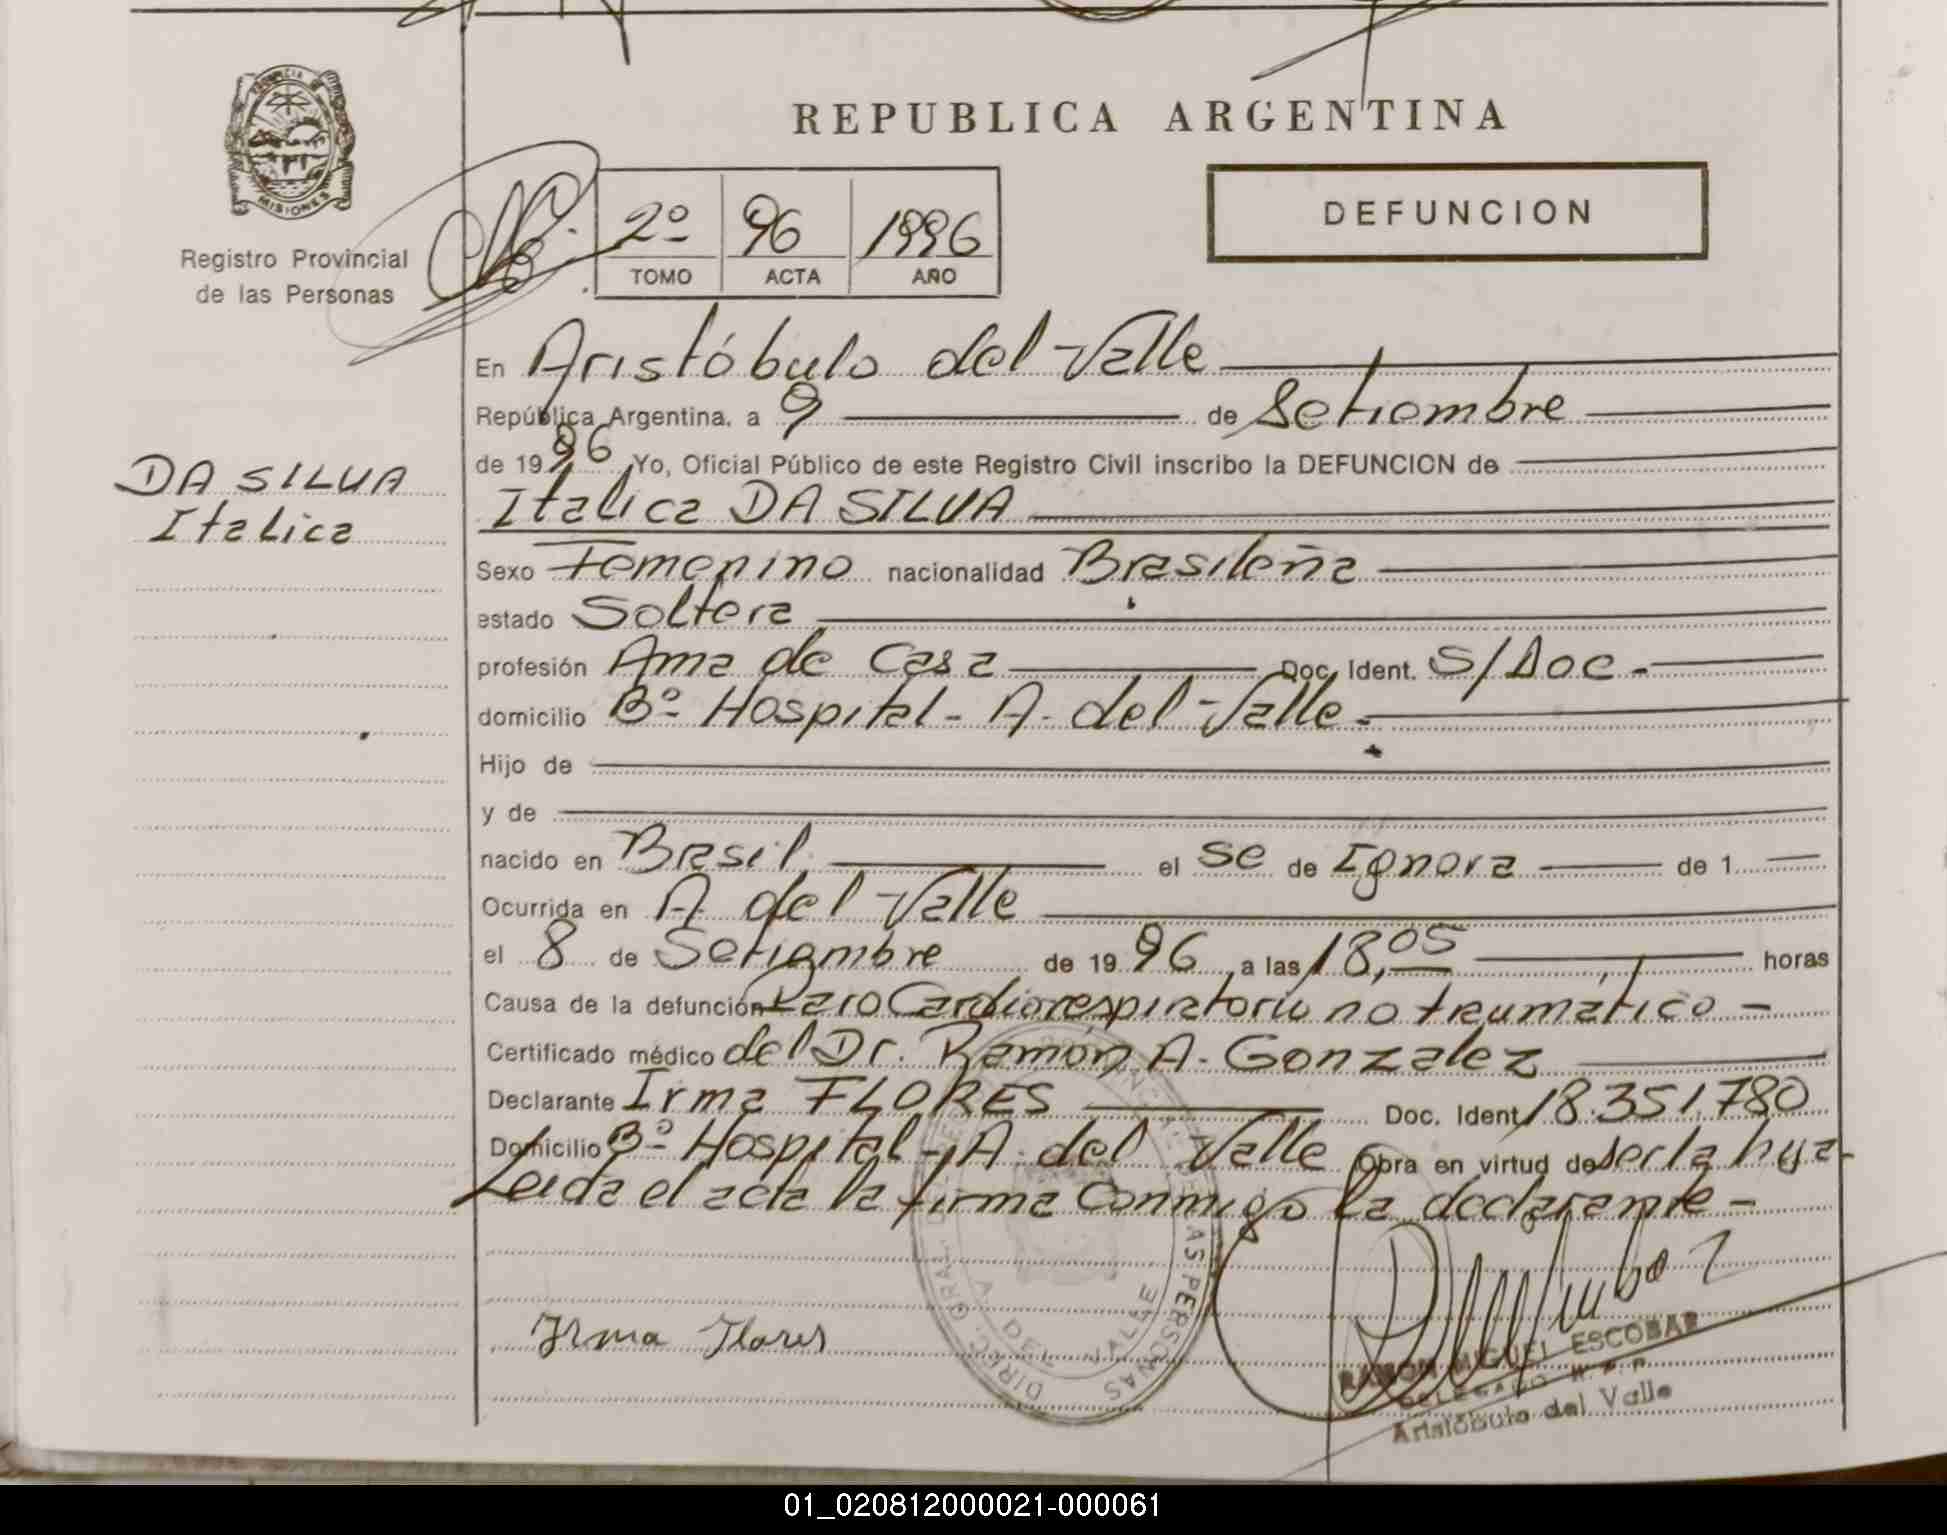 PROVINCIA
MISIONES
Registro Provincial
de las Personas
REPUBLICA ARGENTINA
DEFUNCION
2º 96 1996
TOMO ACTA AÑO
DA SILVA
Italica
En Aristóbulo del Valle
República Argentina, a 9 de Setiembre
de 1996 Yo, Oficial Público de este Registro Civil inscribo la DEFUNCION de
Italica DA SILVA
Sexo Femenino nacionalidad Brasileña
estado Soltera
profesión Ama de Casa Doc. Ident. S/Doc.-
domicilio Bº Hospital - A. del Valle.-
Hijo de
y de
nacido en Brasil. el se de Ignora de 1
Ocurrida en A. del Valle
el 8 de Setiembre de 1996, a las 18,05 horas
Causa de la defunción Paro Cardiorespiratorio no traumático -
Certificado médico del Dr. Ramón A. Gonzalez
Declarante Irma FLORES Doc. Ident. 18.351.780
Domicilio Bº Hospital - A. del Valle Obra en virtud de ser la hija-
Leida el acta la firma Conmigo la declarante -
Irma Flores
DIREC. GRAL. PROVINCIAL DE LAS PERSONAS
A. DEL VALLE
RAMON MIGUEL ESCOBAR
DELEGADO R.P.P.
Aristóbulo del Valle
01_020812000021-000061